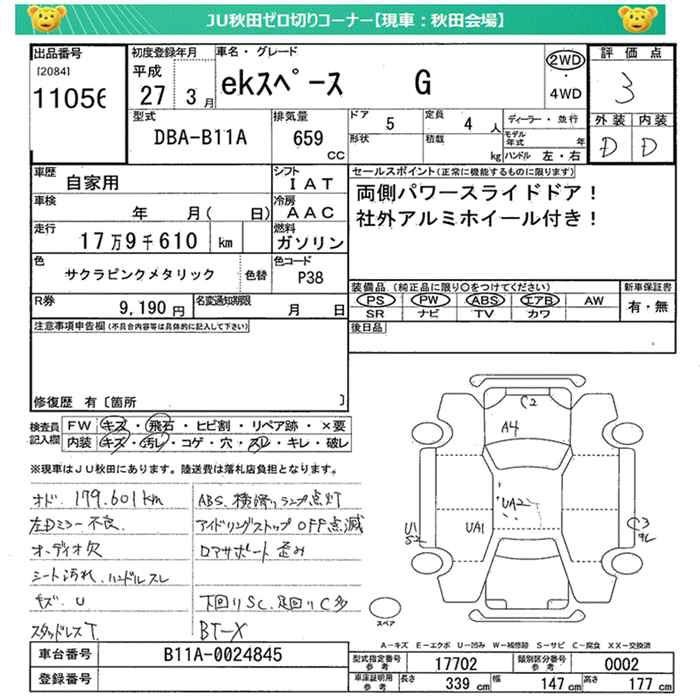 JU秋田ゼロ切りコーナー【現車：秋田会場】
出品番号 初度登録年月 車名・グレード 2WD・4WD 評価点
[2084] 平成
11056 27 3月 ekスペース G 3
型式 排気量 ドア 5 定員 4人 ディーラー・並行 外装 内装
DBA-B11A 659 CC 形状 積載 kg モデル年式 年 ハンドル 左・右 D D
車歴 自家用 シフト IAT セールスポイント(正常に機能するものに限ります)
車検 年 月( 日) 冷房 AAC 両側パワースライドドア！
走行 17万9千610 km 燃料 ガソリン 社外アルミホイール付き！
色 サクラピンクメタリック 色替 色コード P38
装備品(純正品に限り○をつけてください) 新車保証書
R券 9,190円 名変通知期限 月 日 PS PW ABS エアB AW 有・無
SR ナビ TV カワ
注意事項申告欄(不具合内容等は具体的に記入して下さい) 後日品
修復歴 有〔箇所 〕
検査員記入欄 FW キズ・飛石・ヒビ割・リペア跡・×要
内装 キズ・汚レ・コゲ・穴・スレ・キレ・破レ
※現車はJU秋田にあります。陸送費は落札店負担となります。
オド.179.601km ABS、横滑りランプ点灯
左Dミラー不良. アイドリングストップOFF点滅
オーディオ欠 ロアサポート歪み
シート汚れ、ハンドルスレ
キズ、U 下回りSC、足回りC多
スタッドレスT. BT-X
C2
A4
UA2
U1
S2
UA1
C3
スペア
A-キズ E-エクボ U-凹み W-補修跡 S-サビ C-腐食 XX-交換済
車台番号 B11A-0024845 型式指定番号参考 17702 類別区分番号参考 0002
登録番号 車庫証明用参考 長さ 339cm 幅 147cm 高さ 177cm